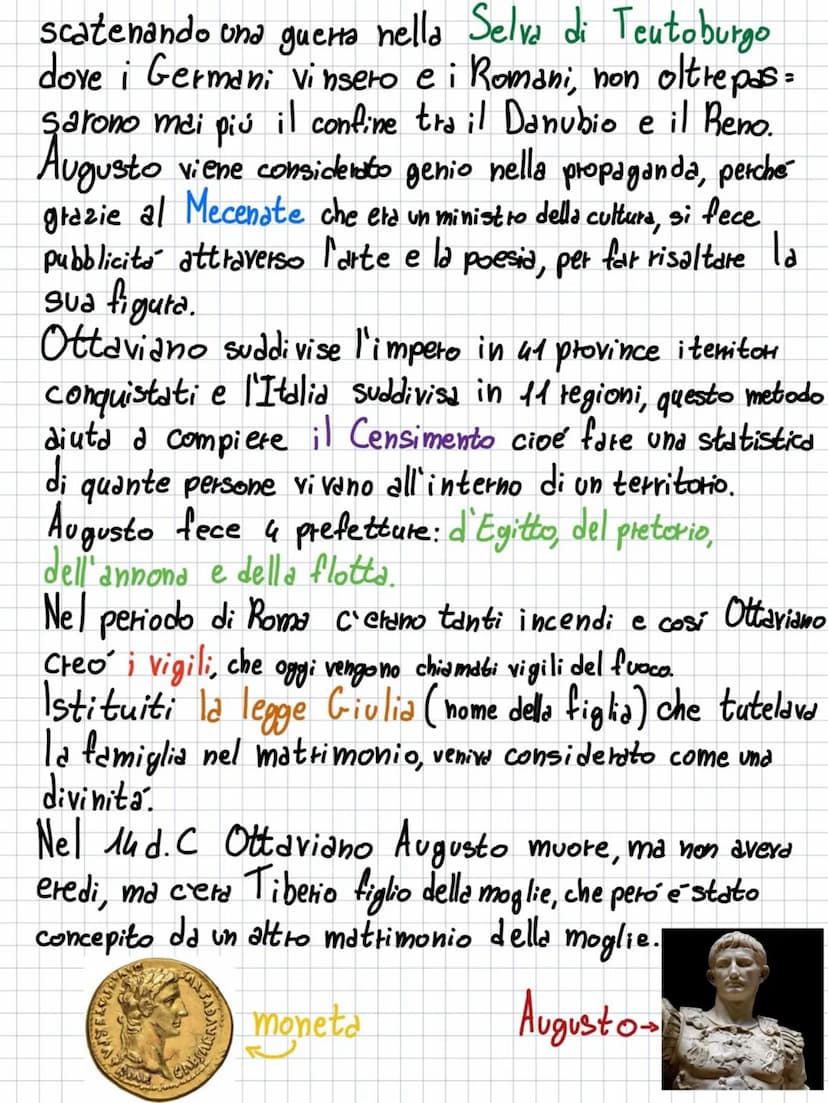 scatenando una guerra nella Selva di Teutoburgo
dove i Germani vinsero e i Romani, non oltrepas=
sarono mai piú il confine tra il Danubio e il Reno.
Augusto viene considerato genio nella propaganda, perché
grazie al Mecenate che era un ministro della cultura, si fece
pubblicitá attraverso l'arte e la poesia, per far risaltare la
sua figura.
Ottaviano suddivise l'impero in 41 province i territori
conquistati e l'Italia suddivisa in 11 regioni, questo metodo
aiuta a compiere il Censimento cioé fare una statistica
di quante persone vivano all'interno di un territorio.
Augusto fece 4 prefetture: d'Egitto, del pretorio,
dell'annona e della flotta.
Nel periodo di Roma c'erano tanti incendi e cosí Ottaviano
creó i vigili, che oggi vengono chiamati vigili del fuoco.
Istituiti la legge Giulia (nome della figlia) che tutelava
la famiglia nel matrimonio, veniva considerato come una
divinitá.
Nel 14 d.C Ottaviano Augusto muore, ma non aveva
eredi, ma c'era Tiberio figlio della moglie, che peró é stato
concepito da un altro matrimonio della moglie.
moneta
Augusto→